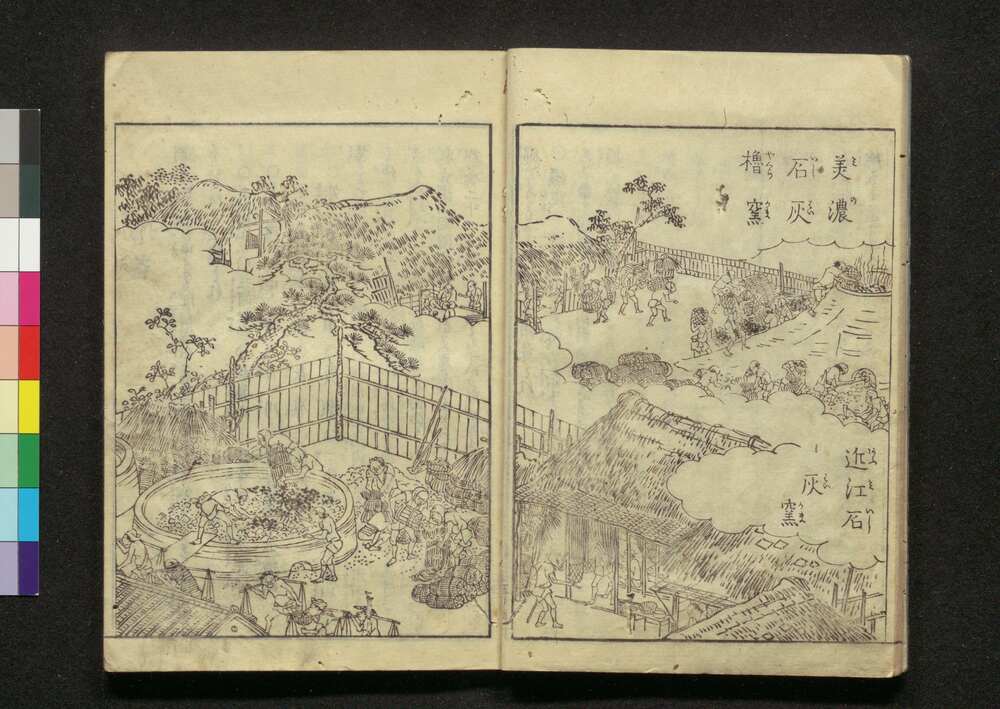 美濃
石灰
櫓窯
近江石
灰
窯